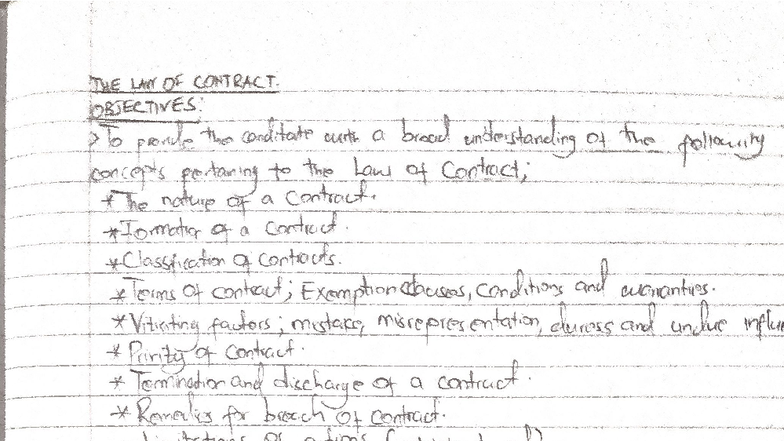 THE LAW OF CONTRACT.
OBJECTIVES:
>To provide the canditate with a broad understanding of the following
concepts pertaning to the Law of Contract;
*The nature of a Contract.
*Formation of a Contract.
*Classification of contracts.
*Terms of contract; Exemption clauses, conditions and warranties.
*Vitiating factors; mistake, misrepresentation, duress and undue influe
*Privity of Contract.
*Termination and discharge of a contract.
*Remedies for breach of contract.